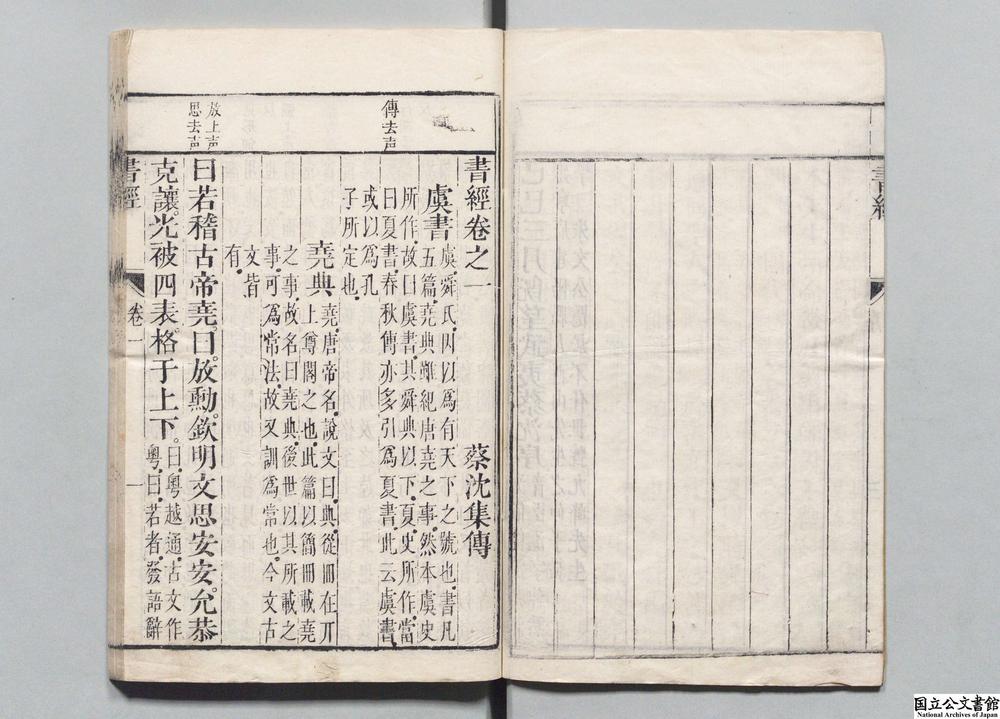 書經
書經卷之一
蔡沈集傳
虞書
虞舜氏因以爲有天下之號也書凡
五篇堯典雖紀唐堯之事然本虞史
所作故曰虞書其舜典以下夏史所作當
曰夏書春秋傳亦多引爲夏書此云虞書
或以爲孔
子所定也
傳去声
堯典
堯唐帝名說文曰典從冊在丌
上尊閣之也此篇以簡冊載堯
之事故名曰堯典後世以其所載之
事可爲常法故又訓爲常也今文古
文皆
有
曰若稽古帝堯曰放勳欽明文思安安允恭
放上声
思去声
克讓光被四表格于上下
曰粤越通古文作
粤曰若者發語辭
書經
卷一
一
国立公文書館
National Archives of Japan